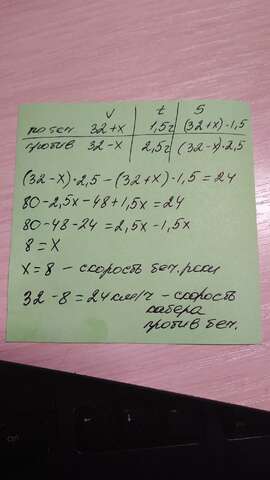 v t S
по теч. 32+x 1,5ч (32+x)·1,5
против 32-x 2,5ч (32-x)·2,5
(32-x)·2,5-(32+x)·1,5=24
80-2,5x-48+1,5x=24
80-48-24=2,5x-1,5x
8=x
x=8 - скорость теч. реки
32-8=24км/ч - скорость
катера
против теч.